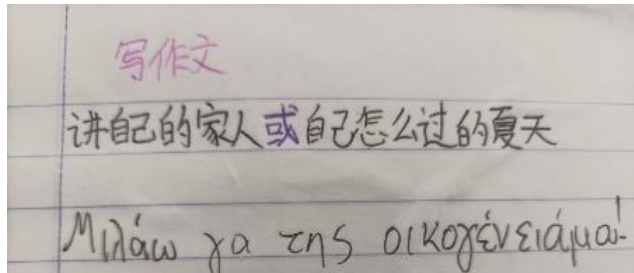 写作文
讲自己的家人或自己怎么过的夏天
Μιλάω γα της οικογένειάμα!